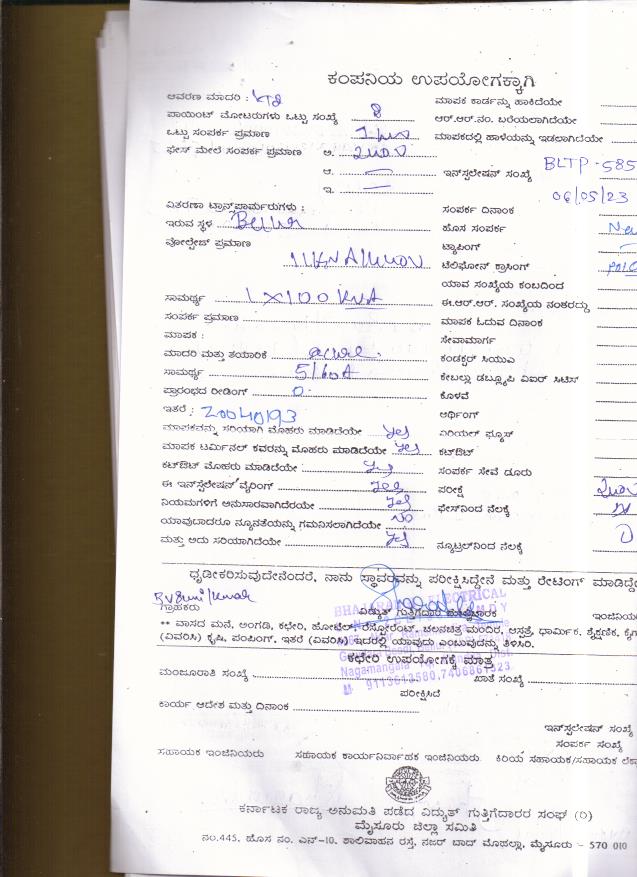 ಕಂಪನಿಯ ಉಪಯೋಗಕ್ಕಾಗಿ
ಆವರಣ ಮಾದರಿ :
ಮಾಪಕ ಕಾರ್ಡನ್ನು ಹಾಕಿದೆಯೇ
ಪಾಯಿಂಟ್ ಮೋಟರುಗಳು ಒಟ್ಟು ಸಂಖ್ಯೆ 8
ಆರ್.ಆರ್.ನಂ. ಬರೆಯಲಾಗಿದೆಯೇ
ಒಟ್ಟು ಸಂಪರ್ಕ ಪ್ರಮಾಣ
ಮಾಪಕದಲ್ಲಿ ಹಾಳೆಯನ್ನು ಇಡಲಾಗಿದೆಯೇ
ಫೇಸ್ ಮೇಲೆ ಸಂಪರ್ಕ ಪ್ರಮಾಣ ಅ. 240V
ಆ. —
ಇನ್‌ಸ್ಟಲೇಷನ್ ಸಂಖ್ಯೆ BLTP-585
ಇ. —
06/05/23
ವಿತರಣಾ ಟ್ರಾನ್ಸ್‌ಫಾರ್ಮರುಗಳು :
ಸಂಪರ್ಕ ದಿನಾಂಕ
ಇರುವ ಸ್ಥಳ Bellur
ಹೊಸ ಸಂಪರ್ಕ
ವೋಲ್ಟೇಜ್ ಪ್ರಮಾಣ
ಟ್ಯಾಪಿಂಗ್ —
ಟೆಲಿಫೋನ್ ಕ್ರಾಸಿಂಗ್
ಯಾವ ಸಂಖ್ಯೆಯ ಕಂಬದಿಂದ
ಸಾಮರ್ಥ್ಯ 1X100 KVA
ಈ.ಆರ್.ಆರ್. ಸಂಖ್ಯೆಯ ನಂತರದ್ದು
ಸಂಪರ್ಕ ಪ್ರಮಾಣ
ಮಾಪಕ ಓದುವ ದಿನಾಂಕ
ಮಾಪಕ :
ಸೇವಾಮಾರ್ಗ
ಮಾದರಿ ಮತ್ತು ತಯಾರಿಕೆ
ಕಂಡಕ್ಟರ್ ಸಿಯುಎ
ಸಾಮರ್ಥ್ಯ 5/60A
ಕೇಬಲ್ಲು ಡಬ್ಲ್ಯೂಪಿ ವಿಐರ್ ಸಿಟಿಸ್
ಪ್ರಾರಂಭದ ರೀಡಿಂಗ್ 0
ಕೊಳವೆ
ಇತರೆ : 20040193
ಅರ್ಥಿಂಗ್
ಮಾಪಕವನ್ನು ಸರಿಯಾಗಿ ಮೊಹರು ಮಾಡಿದೆಯೇ yes
ಏರಿಯಲ್ ಫ್ಯೂಸ್
ಮಾಪಕ ಟರ್ಮಿನಲ್ ಕವರನ್ನು ಮೊಹರು ಮಾಡಿದೆಯೇ yes
ಕಟ್‌ಔಟ್
ಕಟ್‌ಔಟ್ ಮೊಹರು ಮಾಡಿದೆಯೇ yes
ಸಂಪರ್ಕ ಸೇವೆ ದೂರು
ಈ ಇನ್‌ಸ್ಟಲೇಷನ್ ವೈರಿಂಗ್ yes
ಪರೀಕ್ಷೆ 240V
ನಿಯಮಗಳಿಗೆ ಅನುಸಾರವಾಗಿದೆಯೇ yes
ಫೇಸ್‌ನಿಂದ ನೆಲಕ್ಕೆ
ಯಾವುದಾದರೂ ನ್ಯೂನತೆಯನ್ನು ಗಮನಿಸಲಾಗಿದೆಯೇ No
ಮತ್ತು ಅದು ಸರಿಯಾಗಿದೆಯೇ yes
ನ್ಯೂಟ್ರಲ್‌ನಿಂದ ನೆಲಕ್ಕೆ
ಧೃಡೀಕರಿಸುವುದೇನೆಂದರೆ, ನಾನು ಸ್ಥಾವರವನ್ನು ಪರೀಕ್ಷಿಸಿದ್ದೇನೆ ಮತ್ತು ರೇಟಿಂಗ್ ಮಾಡಿದ್ದೇ
ಗ್ರಾಹಕರು
ವಿದ್ಯುತ್ ಗುತ್ತಿಗೆದಾರ
ELECTRICAL
** ವಾಸದ ಮನೆ, ಅಂಗಡಿ, ಕಛೇರಿ, ಹೋಟೆಲ್, ರೆಸ್ಟೋರೆಂಟ್, ಚಲನಚಿತ್ರ ಮಂದಿರ, ಆಸ್ಪತ್ರೆ, ಧಾರ್ಮಿಕ, ಶೈಕ್ಷಣಿಕ, ಕೈಗ
(ವಿವರಿಸಿ) ಕೃಷಿ, ಪಂಪಿಂಗ್, ಇತರೆ (ವಿವರಿಸಿ) ಇದರಲ್ಲಿ ಯಾವುದು ಎಂಬುವುದನ್ನು ತಿಳಿಸಿರಿ.
ಕಛೇರಿ ಉಪಯೋಗಕ್ಕೆ ಮಾತ್ರ
Nagamangala
9113613580,7406861323
ಮಂಜೂರಾತಿ ಸಂಖ್ಯೆ
ಖಾತೆ ಸಂಖ್ಯೆ
ಪರೀಕ್ಷಿಸಿದೆ
ಕಾರ್ಯ ಆದೇಶ ಮತ್ತು ದಿನಾಂಕ
ಇನ್‌ಸ್ಟಲೇಷನ್ ಸಂಖ್ಯೆ
ಸಂಪರ್ಕ ಸಂಖ್ಯೆ
ಸಹಾಯಕ ಇಂಜಿನಿಯರು ಸಹಾಯಕ ಕಾರ್ಯನಿರ್ವಾಹಕ ಇಂಜಿನಿಯರು ಕಿರಿಯ ಸಹಾಯಕ/ಸಹಾಯಕ ಲೆಕ್ಕ
ಕರ್ನಾಟಕ ರಾಜ್ಯ ಅನುಮತಿ ಪಡೆದ ವಿದ್ಯುತ್ ಗುತ್ತಿಗೆದಾರರ ಸಂಘ (ರಿ)
ಮೈಸೂರು ಜಿಲ್ಲಾ ಸಮಿತಿ
ನಂ.445, ಹೊಸ ನಂ. ಎನ್-10, ಶಾಲಿವಾಹನ ರಸ್ತೆ, ನಜರ್ ಬಾದ್ ಮೊಹಲ್ಲಾ, ಮೈಸೂರು - 570 010